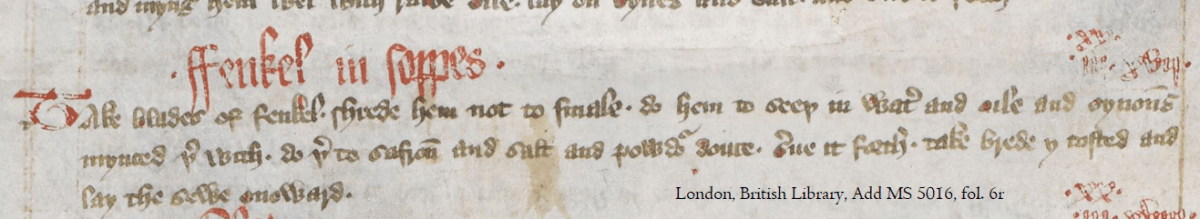 and myng hem wel with
ffenkel in soppes.
Take blades of fenkel. shrede hem not to smale. do hem to seeþ in wat̉ and oile and oynouns
mynced þ̉ with. do þ̉ to safron and salt and powdo᷑ douce. s̉ue it forth. take brede y tosted and
lay the sewe onoward.
London, British Library, Add MS 5016, fol. 6r